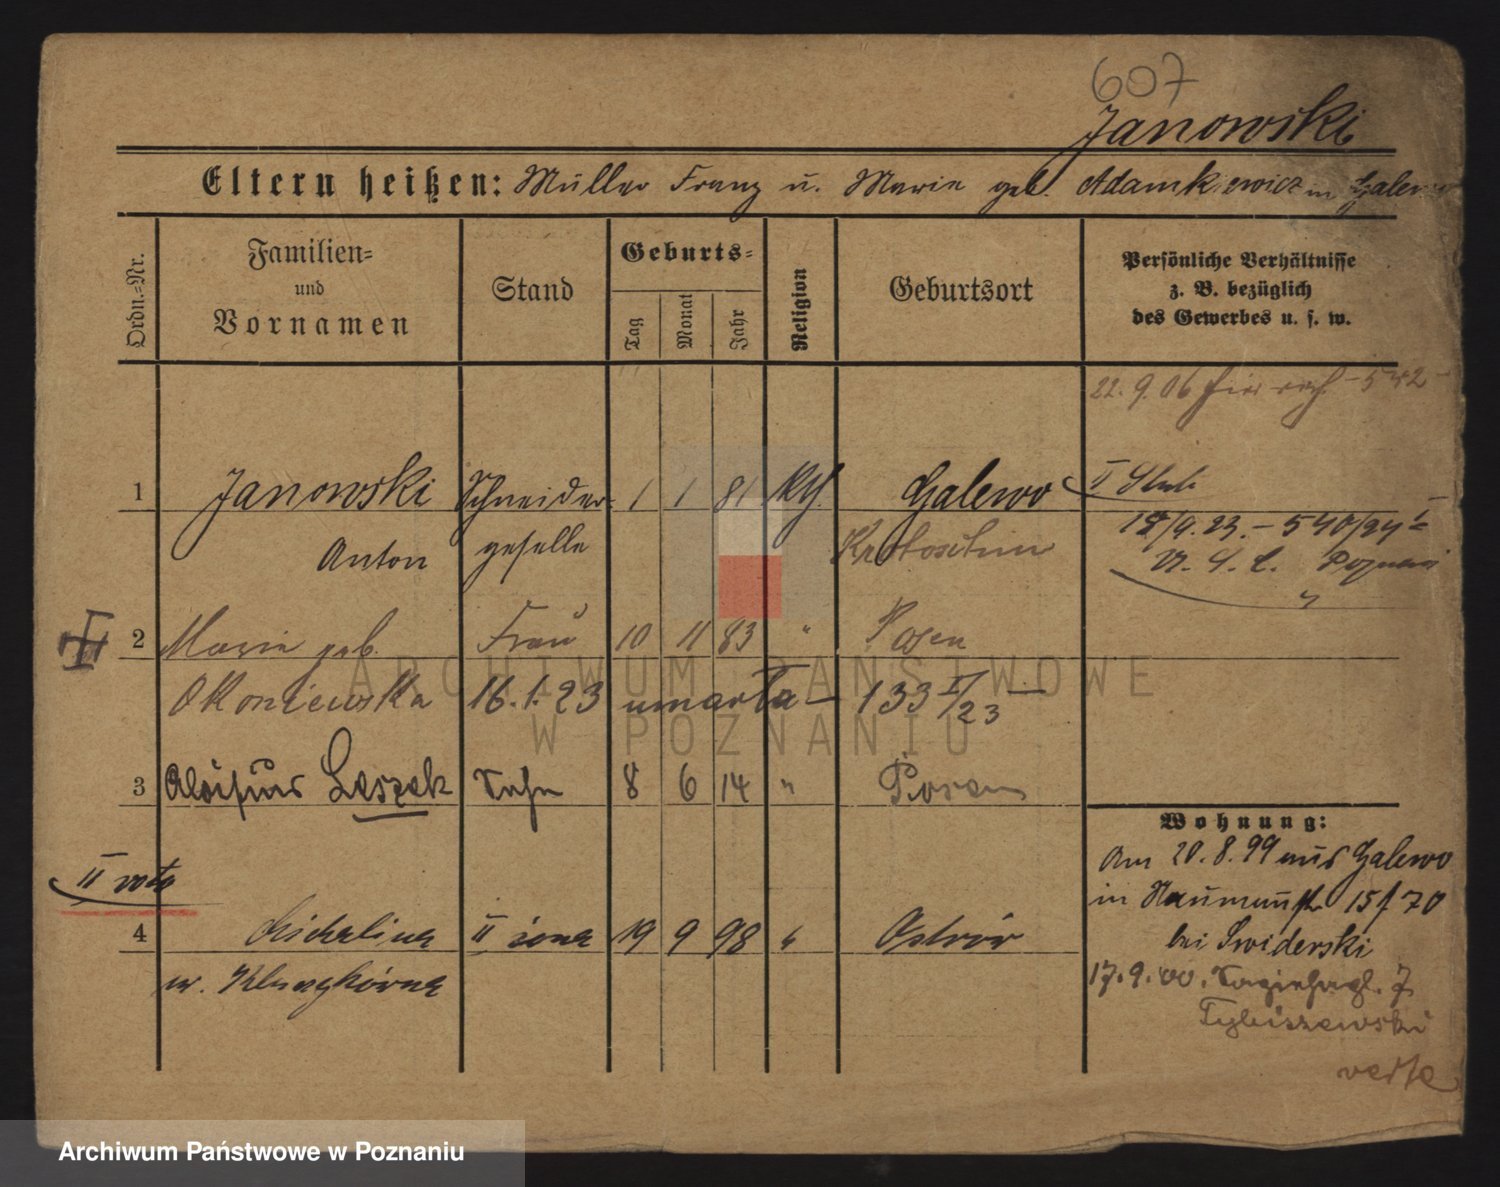 607
Janowski
Eltern heißen: Müller Franz u. Marie geb. Adamkiewicz in Galewo
Ordn.-Nr.
Familien-
und
Vornamen
Stand
Geburts-
Tag
Monat
Jahr
Religion
Geburtsort
Persönliche Verhältnisse
z. B. bezüglich
des Gewerbes u. s. w.
22. 9. 06 hier 542
1 Janowski Schneider- 1 1 81 Kth. Galewo
Anton geselle Krotoschin
II Ślub
18/9. 23. – 540/24
U. S. C. Poznań
2 Marie geb. Frau 10 11 83 " Posen
Okoniewska 16. 1. 23 umarła – 133 I/23 –
3 Aloisius Leszek Sohn 8 6 14 " Posen
II voto
4 Michalina II żona 19 9 98 " Ostrów
ur.
Wohnung:
Am 20. 8. 99 aus Galewo
in Naumannstr 15 f 70
bei Swiderski
17. 9. 00. 7
Tybiszewski
verte
ARCHIWUM PAŃSTWOWE
W POZNANIU
Archiwum Państwowe w Poznaniu